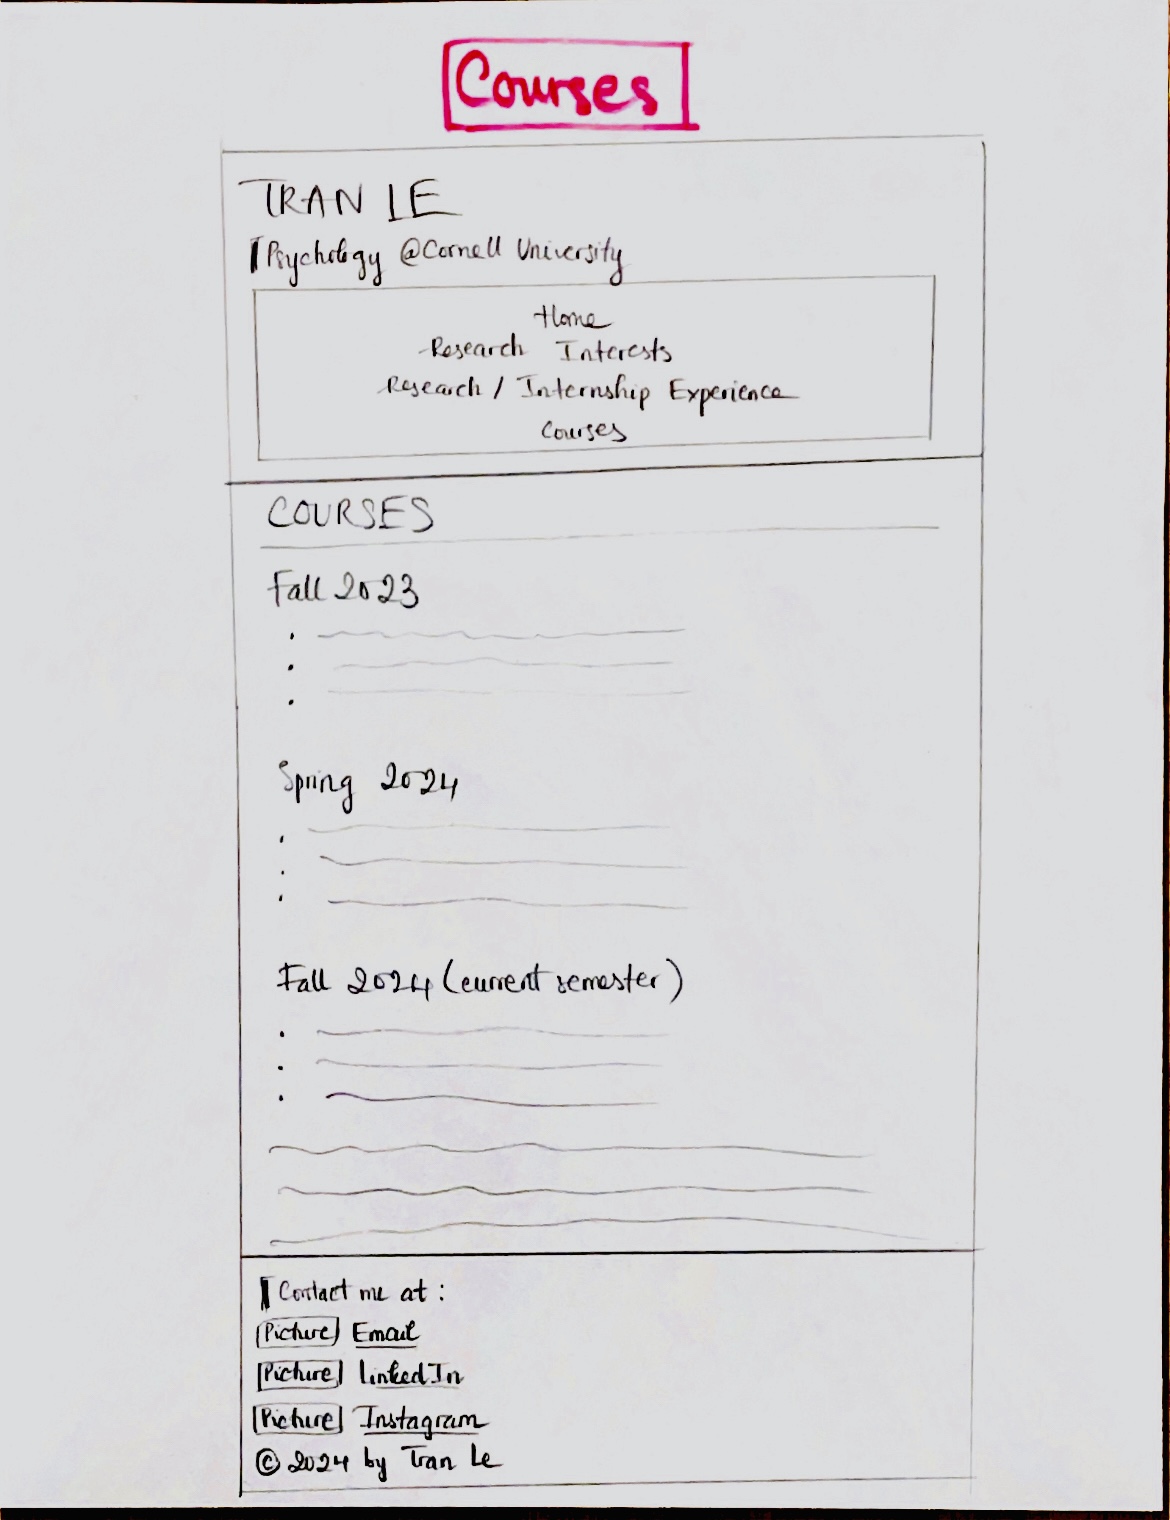 Courses
TRAN LE
Psychology @Cornell University
Home
Research Interests
Research / Internship Experience
Courses
COURSES
Fall 2023
Spring 2024
Fall 2024 (current semester)
Contact me at :
Picture Email
Picture LinkedIn
Picture Instagram
© 2024 by Tran Le